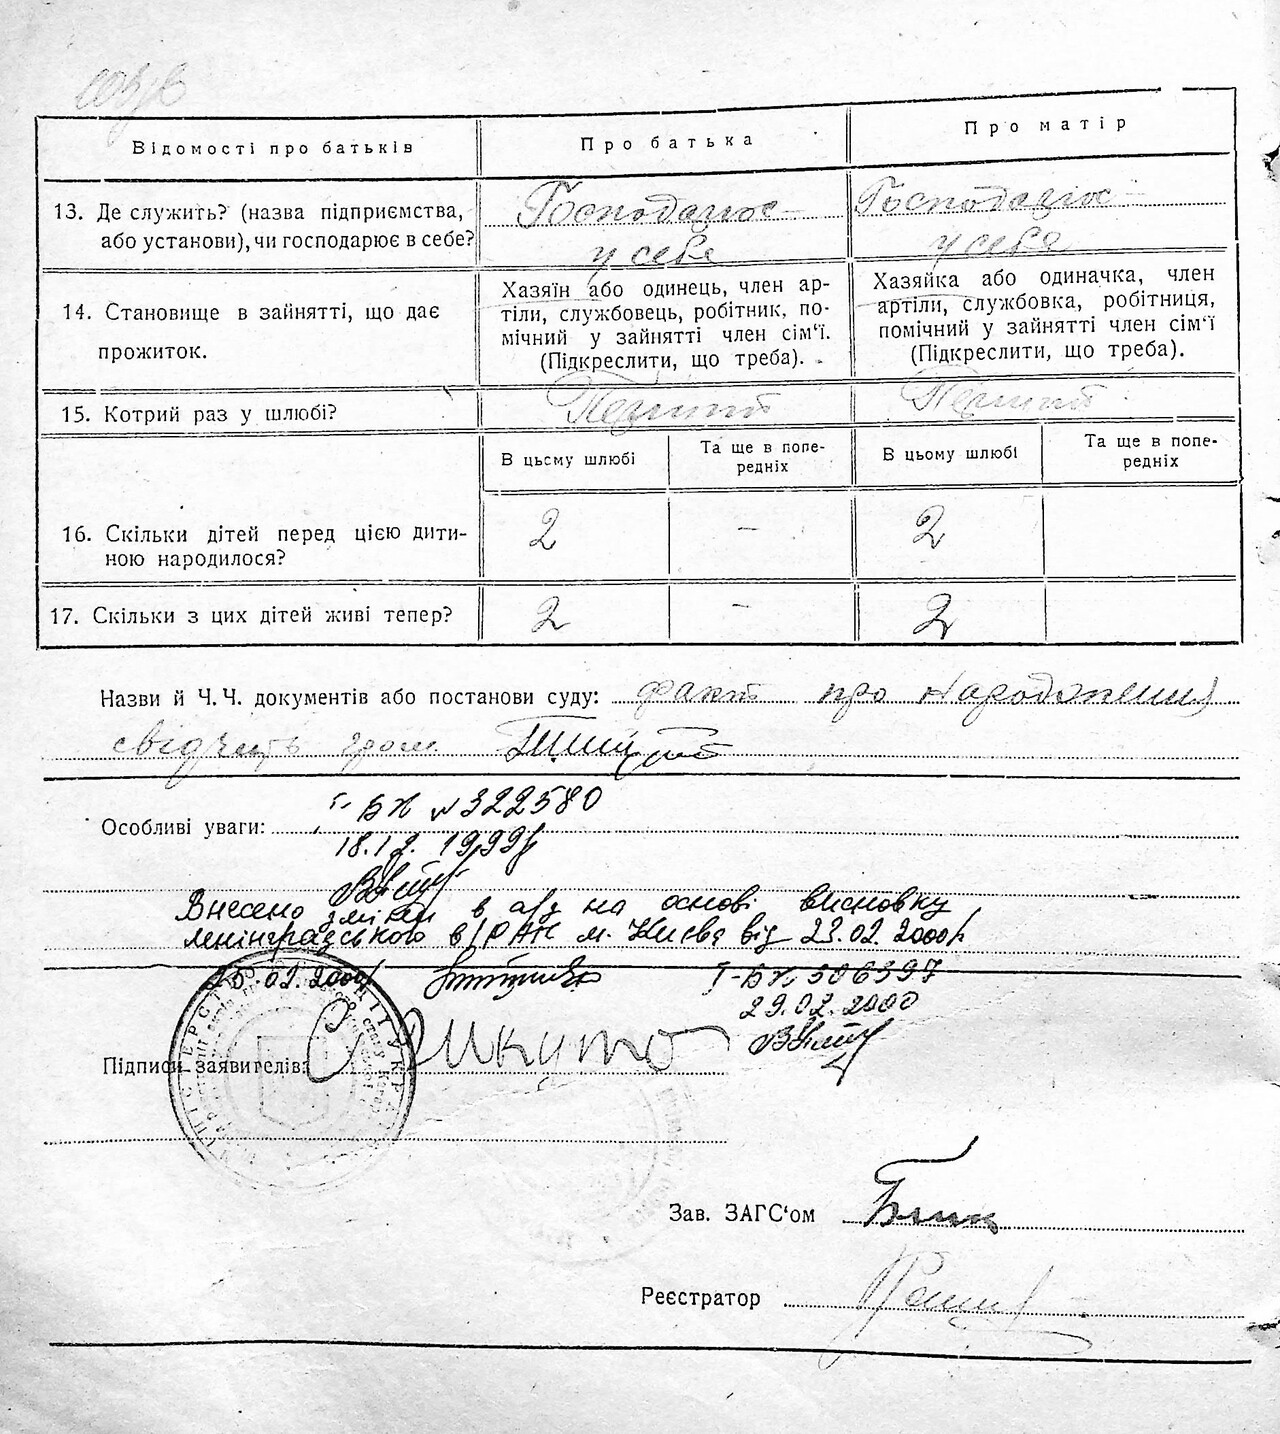 Відомості про батьків
Про батька
Про матір
13. Де служить? (назва підприємства,
або установи), чи господарює в себе?
Господарює
у себе
Господарює
у себе
14. Становище в зайнятті, що дає
прожиток.
Хазяїн або одинець, член ар-
тіли, службовець, робітник, по-
мічний у зайнятті член сім‘ї.
(Підкреслити, що треба).
Хазяйка або одиначка, член
артіли, службовка, робітниця,
помічний у зайнятті член сім‘ї
(Підкреслити, що треба).
15. Котрий раз у шлюбі?
Перший
Перший
В цьому шлюбі
Та ще в попе-
редніх
В цьому шлюбі
Та ще в попе-
редніх
16. Скільки дітей перед цією дити-
ною народилося?
2
–
2
17. Скільки з цих дітей живі тепер?
2
–
2
Назви й Ч.Ч. документів або постанови суду: факт про народження
свідчить гром.
І-БК №322580
Особливі уваги:
18.12. 1999р
Внесено зміни в а/з на основі висновку
Ленінградського в/РАЦС м. Києва від 23.02.2000р
25.02.2000р
І-БК 306397
29.02.2000
Підписи заявителів:
Зав. ЗАГС‘ом
Реєстратор